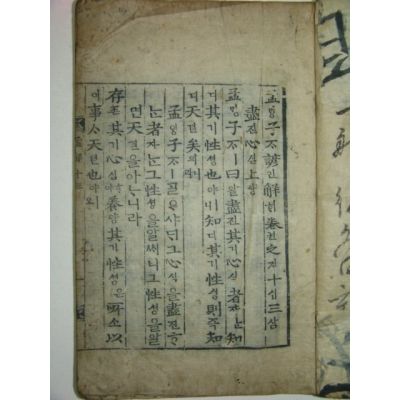 孟ᄆᆡᆼ子ᄌᆞ諺언解ᄒᆡ卷권之지十십三삼
盡진心심上샹
孟ᄆᆡᆼ子ᄌᆞㅣ曰왈盡진其기心심者쟈ᄂᆞᆫ知
디其기性셩也야ㅣ니知디其기性셩則즉知
디天텬矣의니라
孟ᄆᆡᆼ子ᄌᆞㅣᄀᆞᆯᄋᆞ샤ᄃᆡ그心심을盡진ᄒᆞ
ᄂᆞᆫ者쟈ᄂᆞᆫ그性셩을알ᄡᅵ니그性셩을알
면天텬을아ᄂᆞ니라
存존其기心심ᄒᆞ야養양其기性셩은所소以
이事ᄉᆞ天텬也야ㅣ오